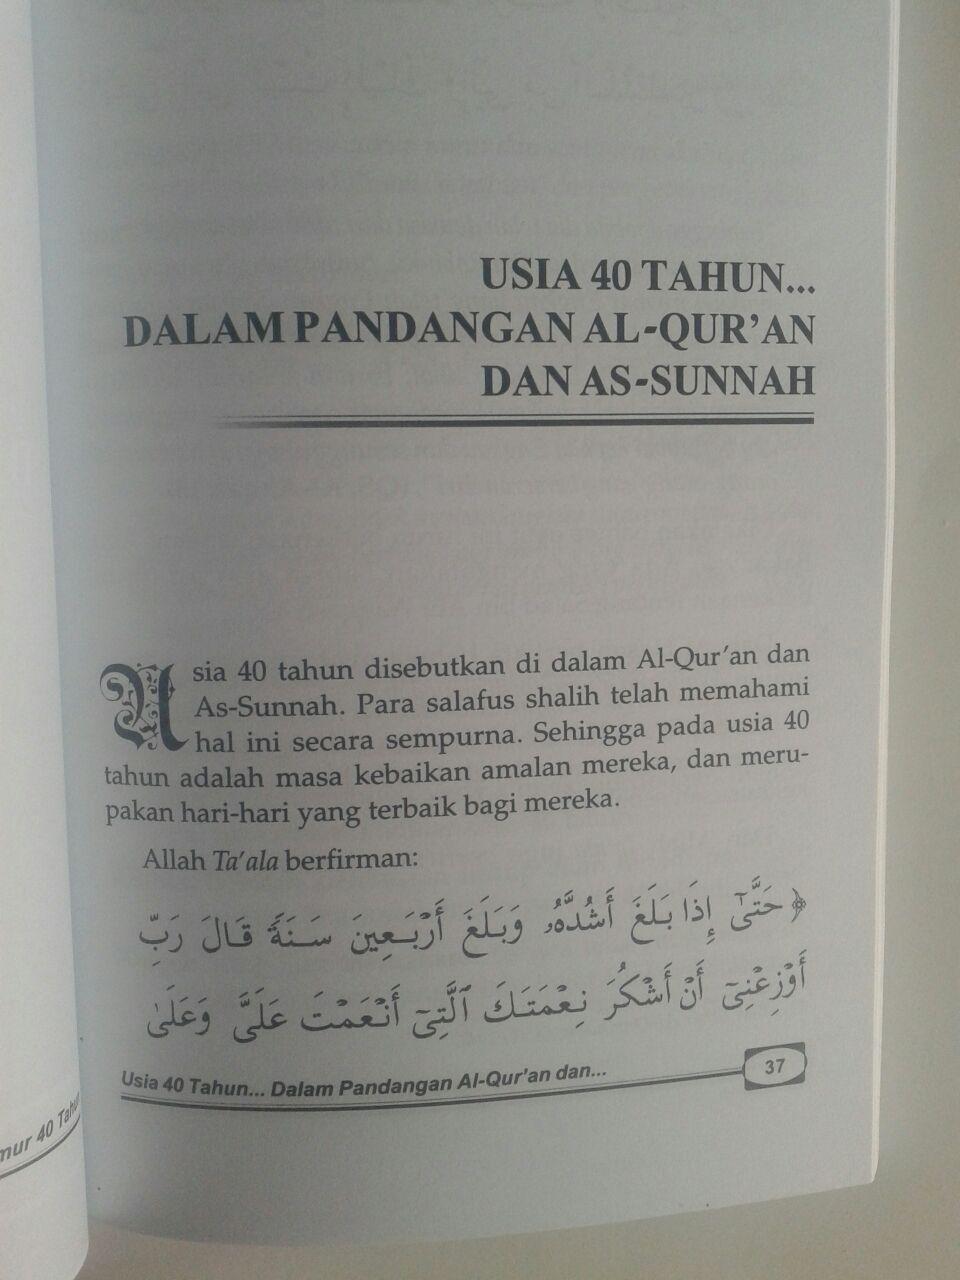 USIA 40 TAHUN...
DALAM PANDANGAN AL-QUR'AN
DAN AS-SUNNAH
Usia 40 tahun disebutkan di dalam Al-Qur'an dan
As-Sunnah. Para salafus shalih telah memahami
hal ini secara sempurna. Sehingga pada usia 40
tahun adalah masa kebaikan amalan mereka, dan meru-
pakan hari-hari yang terbaik bagi mereka.
Allah Ta'ala berfirman:
﴿ حَتَّىٰٓ إِذَا بَلَغَ أَشُدَّهُۥ وَبَلَغَ أَرْبَعِينَ سَنَةً قَالَ رَبِّ
أَوْزِعْنِىٓ أَنْ أَشْكُرَ نِعْمَتَكَ ٱلَّتِىٓ أَنْعَمْتَ عَلَىَّ وَعَلَىٰ
Usia 40 Tahun... Dalam Pandangan Al-Qur'an dan...
37
mur 40 Tahun